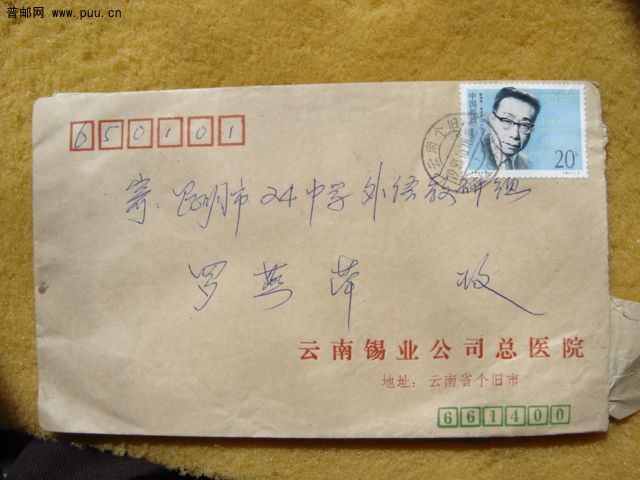 普邮网 www.puu.cn
650101
中国邮政
20分
云南个旧
寄:昆明市24中学外语教研组
罗燕萍 收
云南锡业公司总医院
地址:云南省个旧市
661400